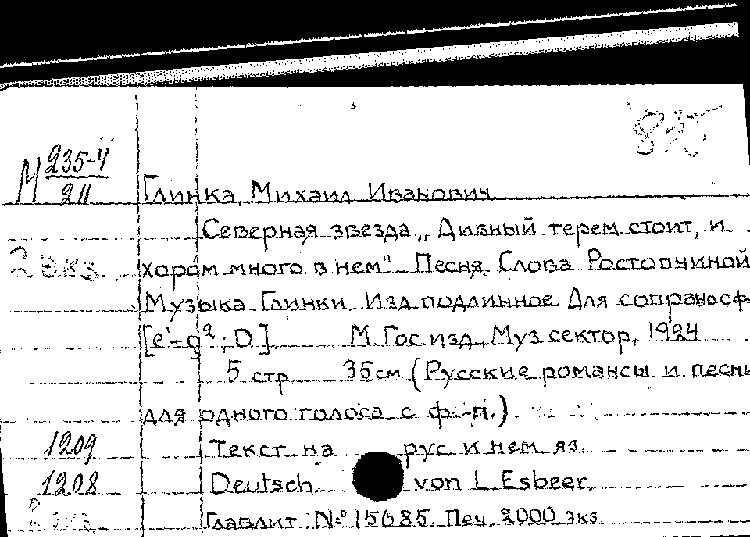 835
М 235-4
211
Глинка, Михаил Иванович
Северная звезда „Дивный терем стоит, и
2 экз. хором много в нем“ Песня. Слова Ростопчиной
Музыка Глинки. Изд. подлинное Для сопрано с ф
[e'-g²; D.] М. Гос. изд., Муз. сектор, 1924
5 стр. 35 см (Русские романсы и песни
для одного голоса с ф.-п.)
1209 Текст на рус. и нем. яз.
1208 Deutsch von L. Esbeer.
2 экз. Главлит № 15685. Печ. 2000 экз.